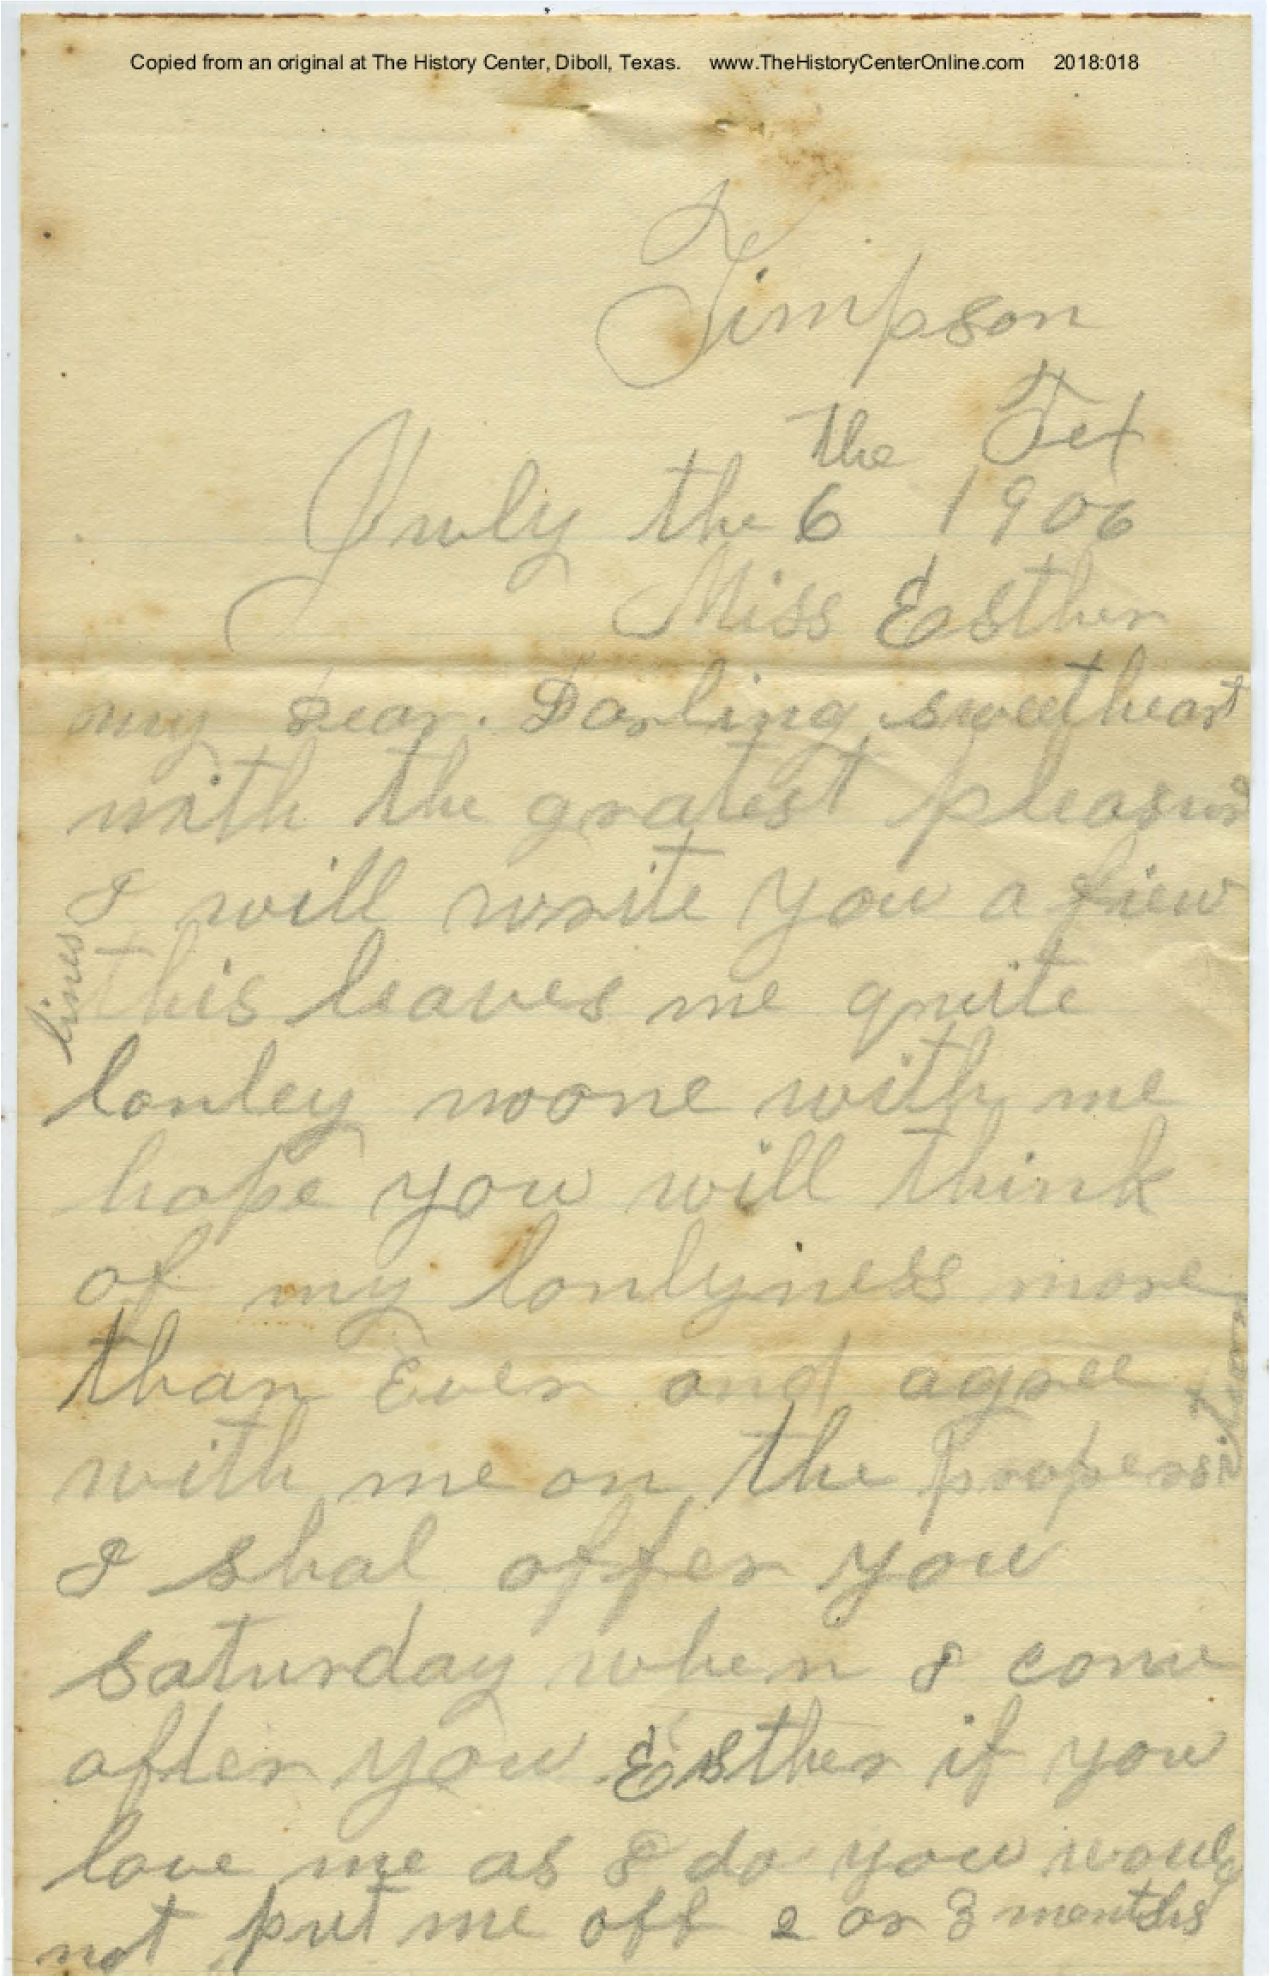 Copied from an original at The History Center, Diboll, Texas. www.TheHistoryCenterOnline.com 2018:018
Timpson
the Tex
July the 6 1906
Miss Esther
my Dear. Darling sweetheart
with the gratest pleasure
I will write you a fiew
lines
this leaves me quite
lonley noone with me
hope you will think
of my lonlyness more
than Ever and agree
with me on the propersition
I shal offer you
saturday when I come
after you Esther if you
love me as I do you would
not put me off 2 or 3 months